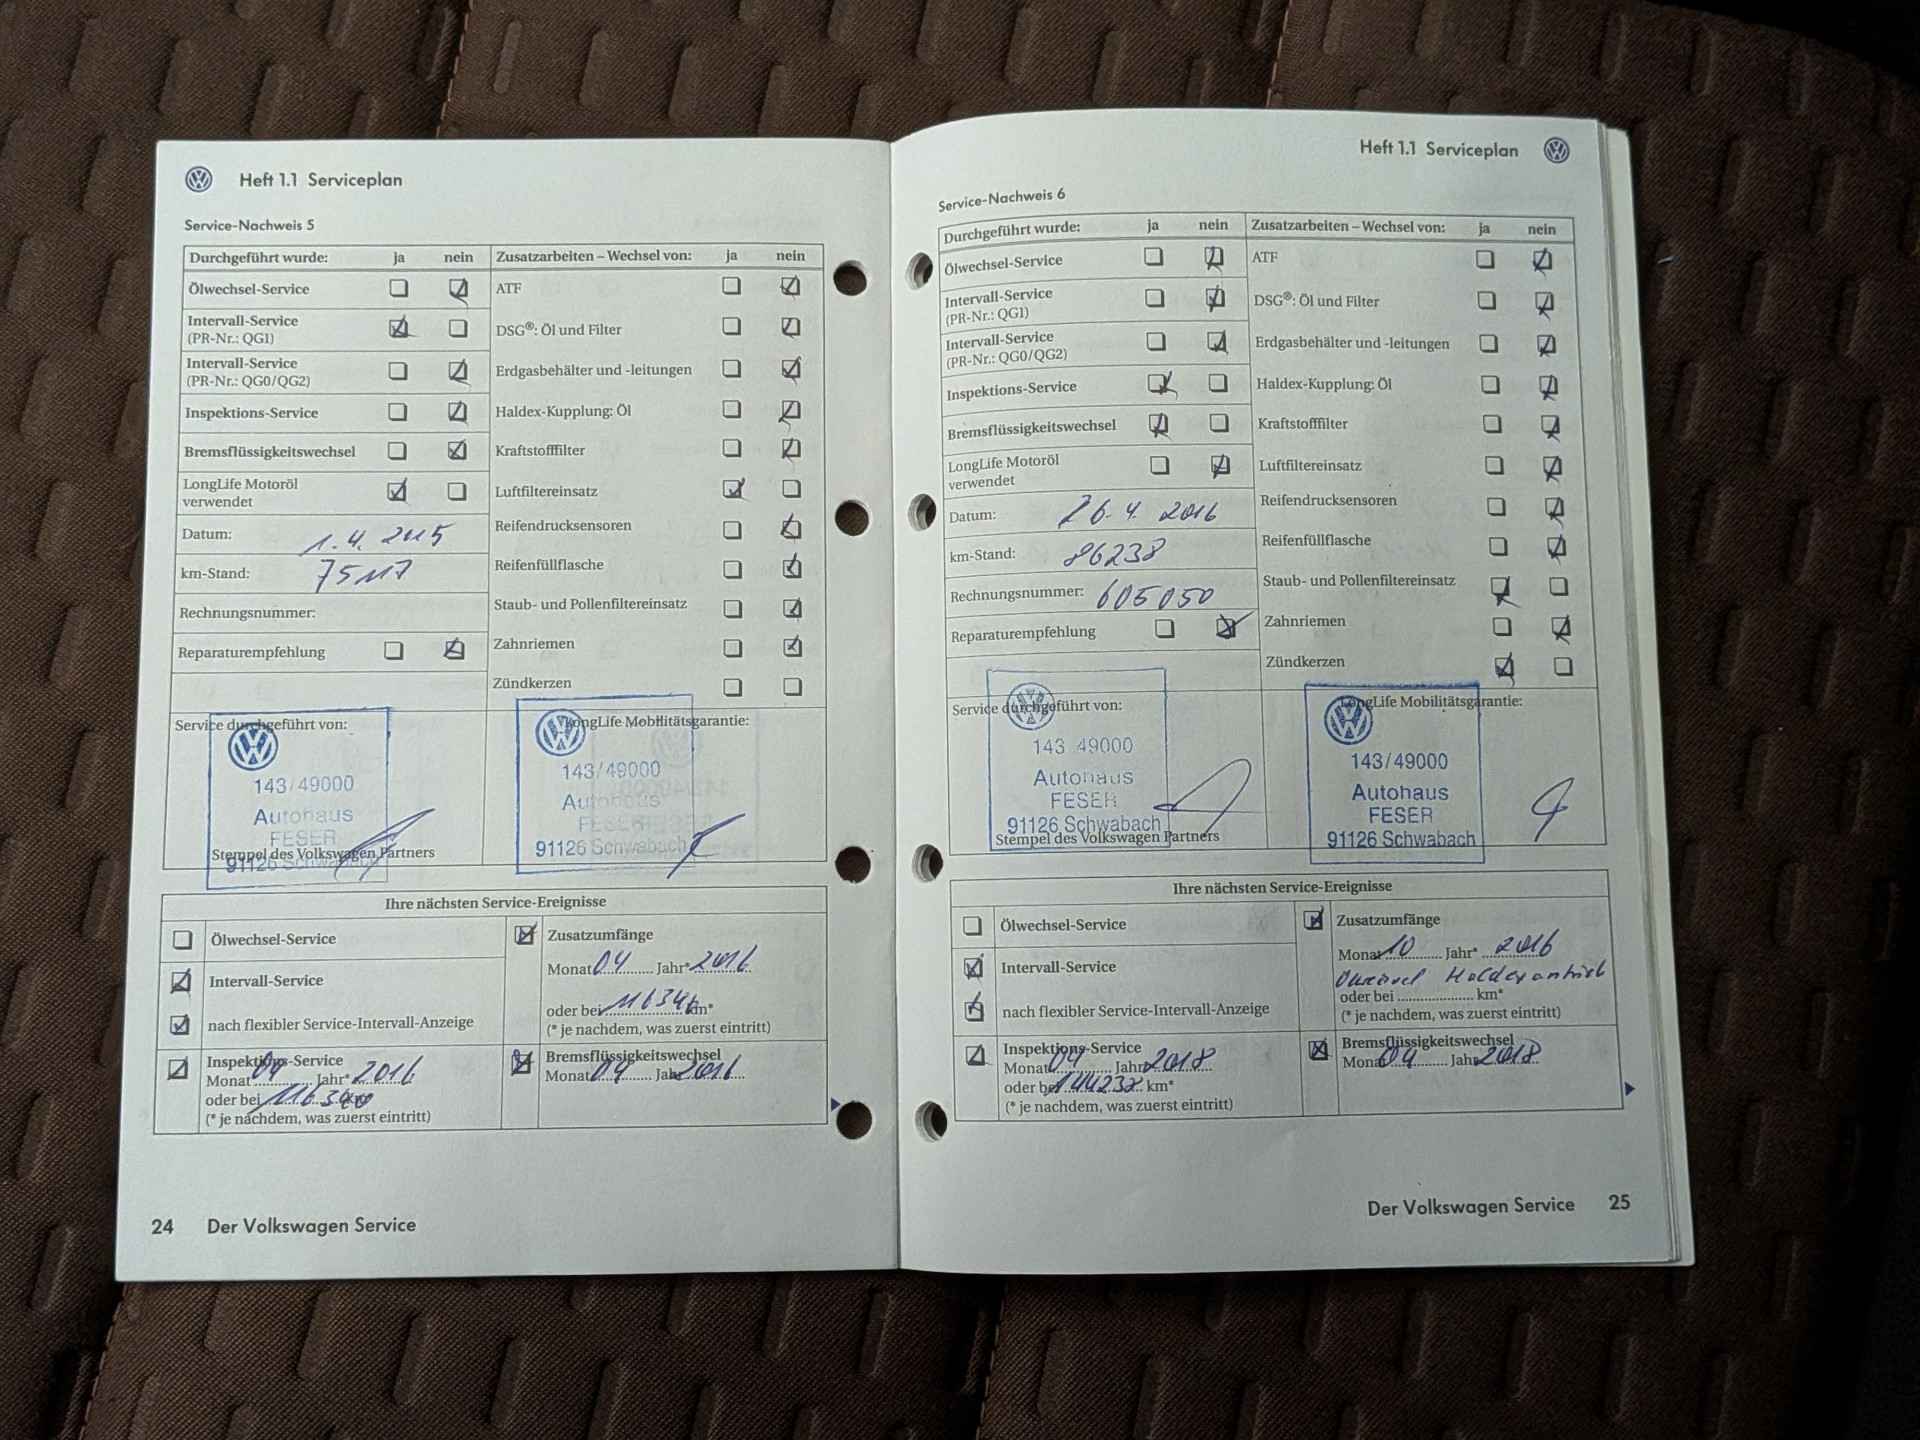 Heft 1.1 Serviceplan
Service-Nachweis 5
Durchgeführt wurde: ja nein Zusatzarbeiten – Wechsel von: ja nein
Ölwechsel-Service ATF
Intervall-Service
(PR-Nr.: QG1) DSG®: Öl und Filter
Intervall-Service
(PR-Nr.: QG0/QG2) Erdgasbehälter und -leitungen
Inspektions-Service Haldex-Kupplung: Öl
Bremsflüssigkeitswechsel Kraftstofffilter
LongLife Motoröl
verwendet Luftfiltereinsatz
Datum: 1.4.2015 Reifendrucksensoren
km-Stand: 75117 Reifenfüllflasche
Rechnungsnummer: Staub- und Pollenfiltereinsatz
Reparaturempfehlung Zahnriemen
Zündkerzen
Service durchgeführt von: LongLife Mobilitätsgarantie:
143/49000 143/49000
Autohaus Autohaus
FESER FESER
91126 Schwabach 91126 Schwabach
Stempel des Volkswagen Partners
Ihre nächsten Service-Ereignisse
Ölwechsel-Service Zusatzumfänge
Monat 04 Jahr* 2016
Intervall-Service
oder bei km*
nach flexibler Service-Intervall-Anzeige (* je nachdem, was zuerst eintritt)
Inspektions-Service Bremsflüssigkeitswechsel
Monat 04 Jahr* 2016 Monat 04 Jahr 2016
oder bei km*
(* je nachdem, was zuerst eintritt)
24 Der Volkswagen Service
Heft 1.1 Serviceplan
Service-Nachweis 6
Durchgeführt wurde: ja nein Zusatzarbeiten – Wechsel von: ja nein
Ölwechsel-Service ATF
Intervall-Service
(PR-Nr.: QG1) DSG®: Öl und Filter
Intervall-Service
(PR-Nr.: QG0/QG2) Erdgasbehälter und -leitungen
Inspektions-Service Haldex-Kupplung: Öl
Bremsflüssigkeitswechsel Kraftstofffilter
LongLife Motoröl
verwendet Luftfiltereinsatz
Datum: 26.4.2016 Reifendrucksensoren
km-Stand: 86238 Reifenfüllflasche
Rechnungsnummer: 605050 Staub- und Pollenfiltereinsatz
Reparaturempfehlung Zahnriemen
Zündkerzen
Service durchgeführt von: LongLife Mobilitätsgarantie:
143 49000 143/49000
Autohaus Autohaus
FESER FESER
91126 Schwabach 91126 Schwabach
Stempel des Volkswagen Partners
Ihre nächsten Service-Ereignisse
Ölwechsel-Service Zusatzumfänge
Monat 10 Jahr* 2016
Intervall-Service
oder bei km*
nach flexibler Service-Intervall-Anzeige (* je nachdem, was zuerst eintritt)
Inspektions-Service Bremsflüssigkeitswechsel
Monat 04 Jahr 2018 Monat 04 Jahr 2018
oder bei km*
(* je nachdem, was zuerst eintritt)
Der Volkswagen Service 25